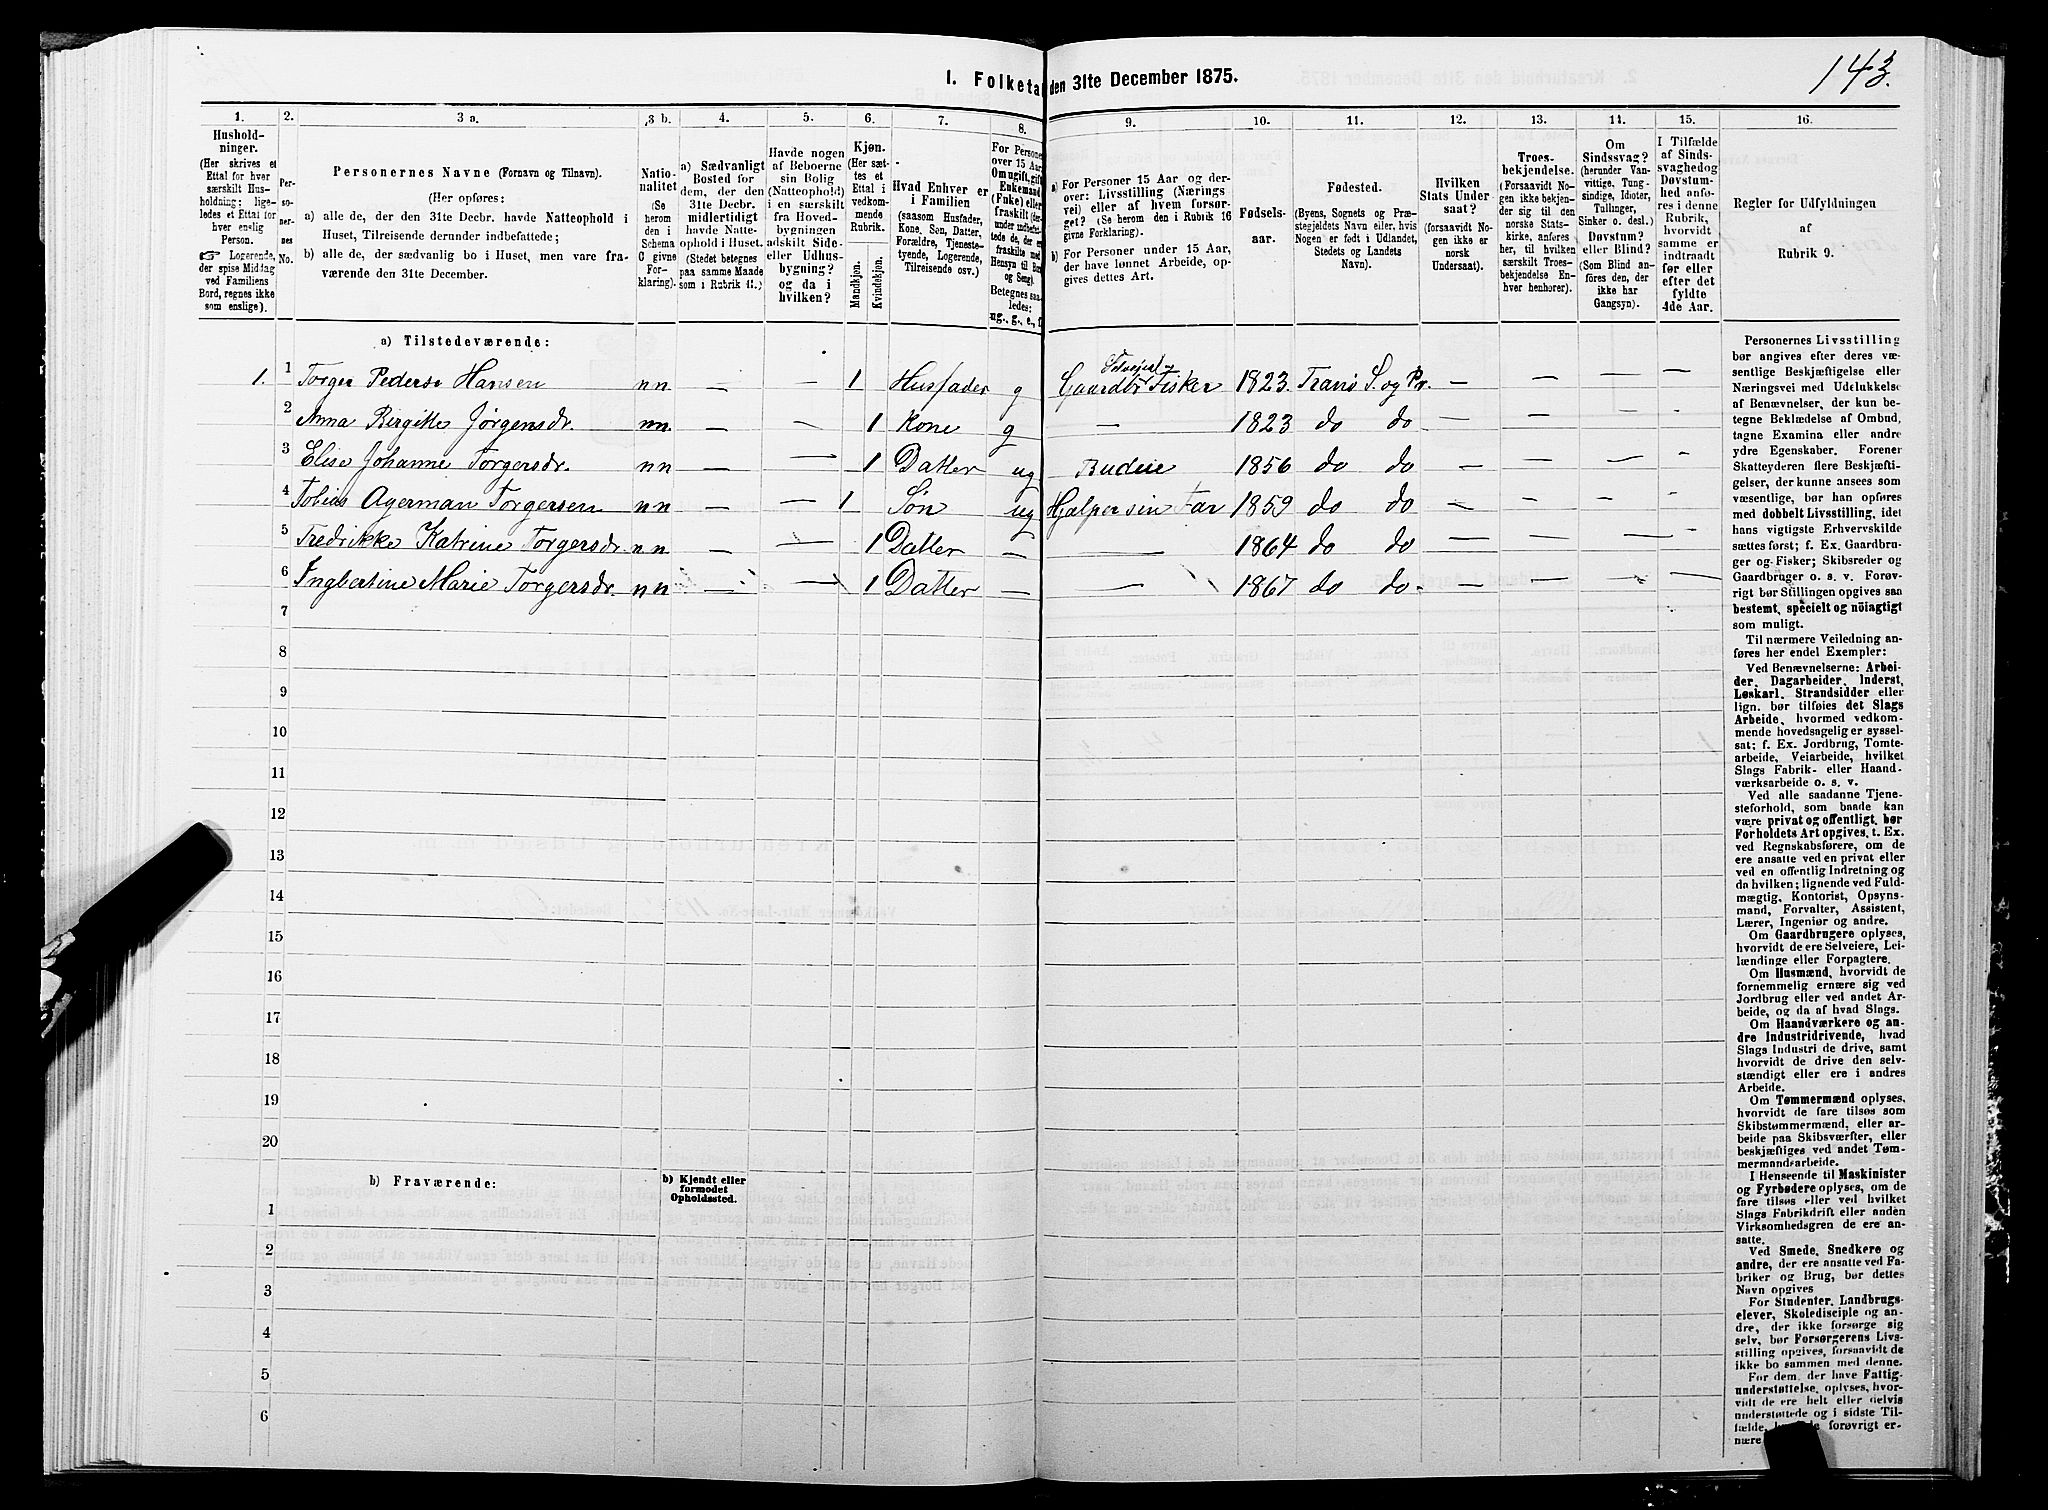 143.
I. Folketal den 31te December 1875.
1. 2. 3 a. 3 b. 4. 5. 6. 7. 8. 9. 10. 11. 12. 13. 14. 15. 16.
Husholdninger.
(Her skrives et Ettal for hver særskilt Husholdning; ligeledes et Ettal for hver enslig Person.
☞ Logerende, der spise Middag ved Familiens Bord, regnes ikke som enslige).
Personernes No.
Personernes Navne (Fornavn og Tilnavn).
(Her opføres:
a) alle de, der den 31te Decbr. havde Natteophold i Huset, Tilreisende derunder indbefattede;
b) alle de, der sædvanlig bo i Huset, men vare fraværende den 31te December.
Nationalitet (Se herom den i Schema C givne Forklaring).
a) Sædvanligt Bosted for dem, der den 31te Decbr. midlertidigt havde Natteophold i Huset. (Stedet betegnes paa samme Maade som i Rubrik 11.)
Havde nogen af Beboerne sin Bolig (Natteophold) i en særskilt fra Hovedbygningen adskilt Side- eller Udhusbygning? og da i hvilken?
Kjøn. (Her sættes et Ettal i vedkommende Rubrik.
Mandkjøn.
Kvindekjøn.
Hvad Enhver er i Familien
(saasom Husfader, Kone, Søn, Datter, Forældre, Tjenestetyende, Logerende, Tilreisende osv.)
a) For Personer 15 Aar og derover: Livsstilling (Næringsvei) eller af hvem forsørget? (Se herom den i Rubrik 16 givne Forklaring).
b) For Personer under 15 Aar, der have lønnet Arbeide, opgives dettes Art.
Fødselsaar.
Fødested.
(Byens, Sognets og Præstegjeldets Navn eller, hvis Nogen er født i Udlandet, Stedets og Landets Navn).
Hvilken Stats Undersaat? (forsaavidt Nogen ikke er norsk Undersaat).
Troesbekjendelse.
(Forsaavidt Nogen ikke bekjender sig til den norske Statskirke, anføres her, til hvilken særskilt Troesbekjendelse Enhver henhorer).
Om Sindssvag? (herunder Vanvittige, Tungsindige, Idioter, Tullinger, Sinker o. desl.) Døvstum? eller Blind? (Som Blind anføres den, der ikke har Gangsyn).
I Tilfælde af Sindssvaghed og Døvstumhed anføres i denne Rubrik, hvorvidt samme er indtraadt før eller efter det fyldte 4de Aar.
Regler for Udfyldningen af Rubrik 9.
a) Tilstedeværende:
1. 1 Torger Peders. Hansen nn — — 1 Husfader g Gaardbr Selveier Fisker 1823. Tranø S. og Pr. — — — —
2 Anna Birgitte Jørgensdr. nn. — — 1 Kone g — 1823 do do — — — —
3 Elise Johanne Torgersdr. nn — — 1 Datter ug Budeie 1856 do do — — — —
4 Tobias Agerman Torgersen nn — — 1 Søn ug Hjælper sin Far 1859 do do — — — —
5 Fredrikke Katrine Torgersdr. nn — — 1 Datter — — 1864 do do — — — —
6 Ingbertine Marie Torgersdr. nn — — 1 Datter — — 1867 do do — — — —
7
8
9
10
11
12
13
14
15
16
17
18
19
20
b) Fraværende: b) Kjendt eller formodet Opholdssted.
1
2
3
4
5
6
Personernes Livsstilling
bør angives efter deres væsentlige Beskjæftigelse eller
Næringsvei med Udelukkelse
af Benævnelser, der kun betegne Beklædelse af Ombud,
tagne Examina eller andre
ydre Egenskaber. Forener
Skatteyderen flere Beskjæftigelser, der kunne ansees som
væsentlige, bør han opføres
med dobbelt Livsstilling, idet
hans vigtigste Erhvervskilde
sættes først; f. Ex. Gaardbruger og Fisker; Skibsreder og
Gaardbruger o. s. v. Forøvrigt bør Stillingen opgives saa
bestemt, specielt og nöiagtigt
som muligt.
Til nærmere Veiledning anføres her endel Exempler:
Ved Benævnelserne: Arbeider, Dagarbeider, Inderst,
Løskarl, Strandsidder eller
lign. bør tilføies det Slags
Arbeide, hvormed vedkommende hovedsagelig er sysselsat; f. Ex. Jordbrug, Tomtearbeide, Veiarbeide, hvilket
Slags Fabrik- eller Haandværksarbeide o. s. v.
Ved alle saadanne Tjenesteforhold, som baade kan
være privat og offentligt, bør
Forholdets Art opgives, t. Ex.
ved Regnskabsførere, om de
ere ansatte ved en privat eller
ved en offentlig Indretning og
da hvilken; lignende ved Fuldmægtig, Kontorist, Opsynsmand, Forvalter, Assistent,
Lærer, Ingeniør og andre.
Om Gaardbrugere oplyses,
hvorvidt de ere Selveiere, Leilændinge eller Forpagtere.
Om Husmænd, hvorvidt de
fornemmelig ernære sig ved
Jordbrug eller ved andet Arbeide, og da af hvad Slags.
Om Haandværkere og andre Industridrivende, hvad
Slags Industri de drive, samt
hvorvidt de drive den selvstændigt eller ere i andres
Arbeide.
Om Tømmermænd oplyses,
hvorvidt de fare tilsøs som
Skibstømmermænd, eller arbeide paa Skibsværfter, eller
beskjæftiges ved andet Tømmermandsarbeide.
I Henseende til Maskinister
og Fyrbødere oplyses, om de
fare tilsøs eller ved hvilket
Slags Fabrikdrift eller anden
Virksomhedsgren de ere ansatte.
Ved Smede, Snedkere og
andre, der ere ansatte ved Fabriker og Brug, bør dettes
Navn opgives
For Studenter, Landbrugselever, Skoledisciple og andre, der ikke forsørge sig
selv, bør Forsørgerens Livsstilling opgives, forsaavidt de
ikke bo sammen med denne.
For dem, der have Fattigunderstøttelse, oplyses, hvorvidt de ere helt eller delvis
understøttede og i sidste Tilfælde, forøvrigt ernære